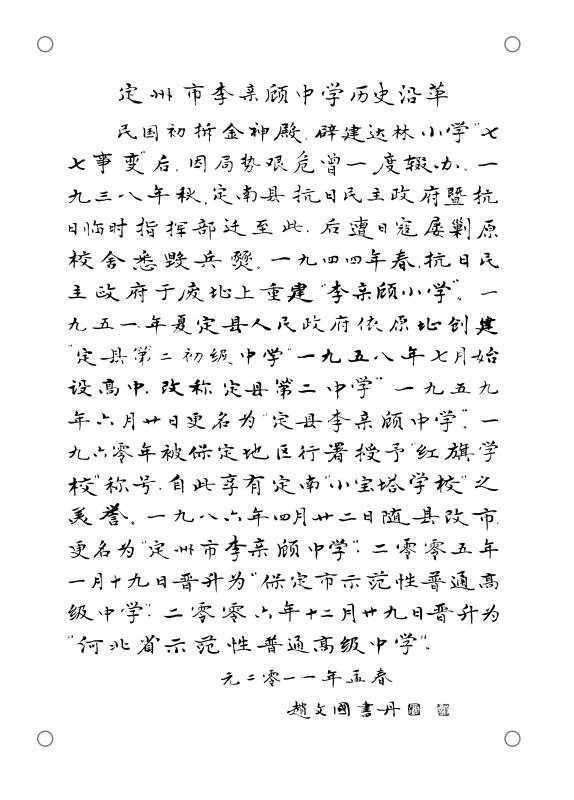 定州市李亲顾中学历史沿革
民国初拆金神殿，辟建达林小学“七
七事变”后，因局势艰危曾一度辍办。一
九三八年秋，定南县抗日民主政府暨抗
日临时指挥部迁至此，后遭日寇屡剿原
校舍悉毁兵燹。一九四四年春，抗日民
主政府于废址上重建“李亲顾小学”。一
九五一年夏定县人民政府依原址创建
“定县第二初级中学”一九五八年七月始
设高中，改称定县第二中学” 一九五九
年六月廿日更名为“定县李亲顾中学”。一
九六零年被保定地区行署授予“红旗学
校”称号，自此享有定南“小宝塔学校”之
美誉。一九八六年四月廿二日随县改市，
更名为“定州市李亲顾中学”；二零零五年
一月十九日晋升为“保定市示范性普通高
级中学”；二零零六年十二月廿九日晋升为
“河北省示范性普通高级中学”。
元二零一一年孟春
趙文國書丹